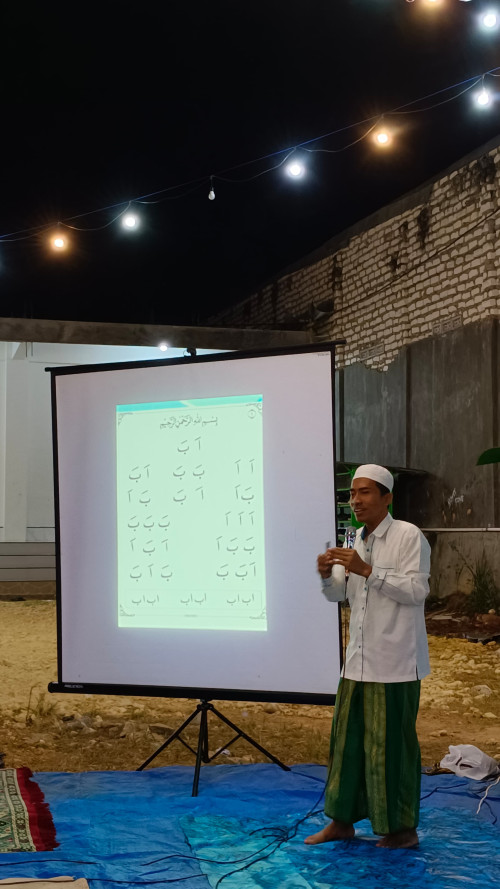 بِسْمِ اللهِ الرَّحْمٰنِ الرَّحِيْمِ
اَ بَ
اَ اَ بَ بَ اَ بَ
بَ اَ اَ بَ بَ اَ
اَ اَ اَ بَ بَ بَ
بَ بَ اَ اَ بَ اَ
اَ بَ بَ بَ اَ بَ
اب اب اب اب اب اب